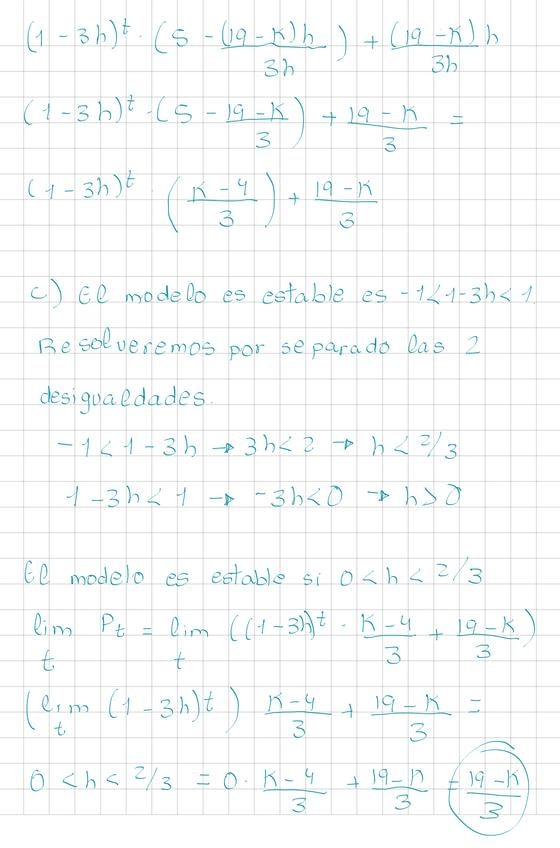 (1 - 3h)^t · (5 - (19 - K)h / 3h) + (19 - K)h / 3h
(1 - 3h)^t · (5 - 19 - K / 3) + 19 - K / 3 =
(1 - 3h)^t · (K - 4 / 3) + 19 - K / 3
c) El modelo es estable es -1 < 1 - 3h < 1.
Resolveremos por separado las 2
desigualdades.
-1 < 1 - 3h → 3h < 2 → h < 2/3
1 - 3h < 1 → -3h < 0 → h > 0
El modelo es estable si 0 < h < 2/3
lim t Pt = lim t ((1 - 3h)^t · K - 4 / 3 + 19 - K / 3)
(lim t (1 - 3h)^t) K - 4 / 3 + 19 - K / 3 =
0 < h < 2/3 = 0 · K - 4 / 3 + 19 - K / 3 = 19 - K / 3